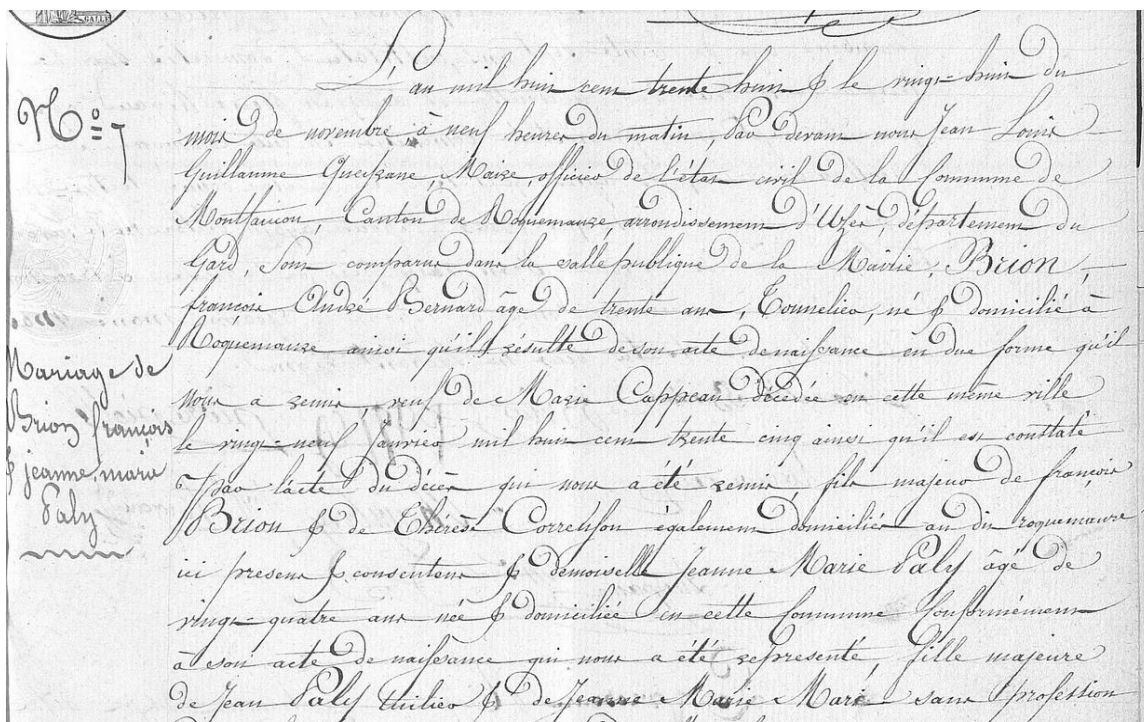 L'an mil huit cent trente huit & le vingt-huit du
N° 7
mois de novembre à neuf heures du matin, Par devant nous Jean Louis
Guillaume Queyrane, Maire, officier de l'état civil de la Commune de
Montfaucon, Canton de Roquemaure, arrondissement d'Uzès, département du
Gard, Sont comparus dans la salle publique de la Mairie, Brion
françois André Bernard âgé de trente ans, Tonnelier, né & domicilié à
Roquemaure ainsi qu'il résulte de son acte de naissance en due forme qu'il
nous a remis, veuf de Marie Cappeau décédée en cette même ville
le vingt-neuf janvier mil huit cent trente cinq ainsi qu'il est constaté
par l'acte du décès qui nous a été remis, fils majeur de françois
Brion & de Thérèse égalemens domiciliés au dit roquemaure
ici presens & consentens & demoiselle Jeanne Marie Paly âgé de
vingt-quatre ans née & domiciliée en cette Commune Conformément
à son acte de naissance qui nous a été représenté, fille majeure
de Jean Paly & de Jeanne Marie Maré sans profession
Mariage de
Brion françois
& jeanne marie
Paly